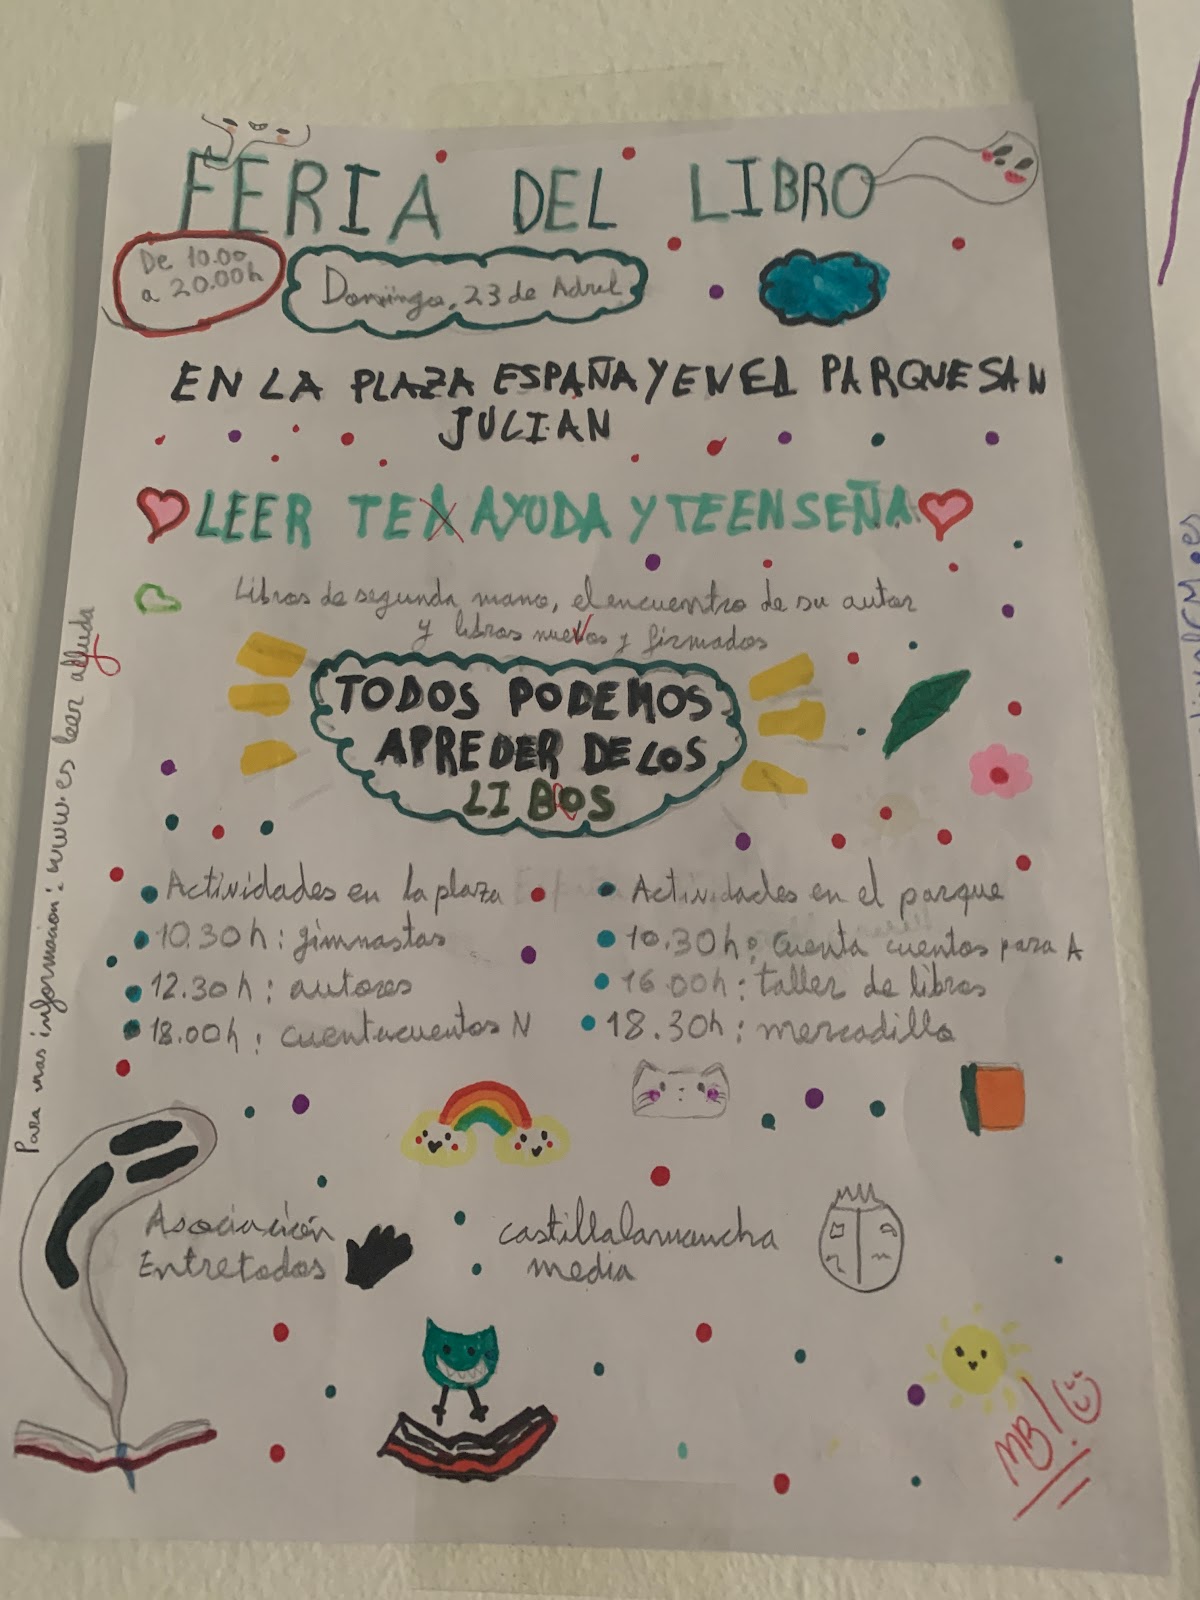 FERIA DEL LIBRO
De 10.00
a 20.00h
Domingo, 23 de Abril
EN LA PLAZA ESPAÑA Y EN EL PARQUE SAN
JULIAN
LEER TE AYUDA Y TE ENSEÑA
Libros de segunda mano, el encuentro de su autor
y libros nuevos y firmados
TODOS PODEMOS
APREDER DE LOS
LIBROS
Actividades en la plaza
10.30h: gimnastas
12.30h: autores
18.00h: cuentacuentos N
Actividades en el parque
10.30h: cuenta cuentos para A
16.00h: taller de libros
18.30h: mercadillo
Para mas informacion: www.es leer alluda
Asociación
Entretodos
castillalamancha
media
MB!